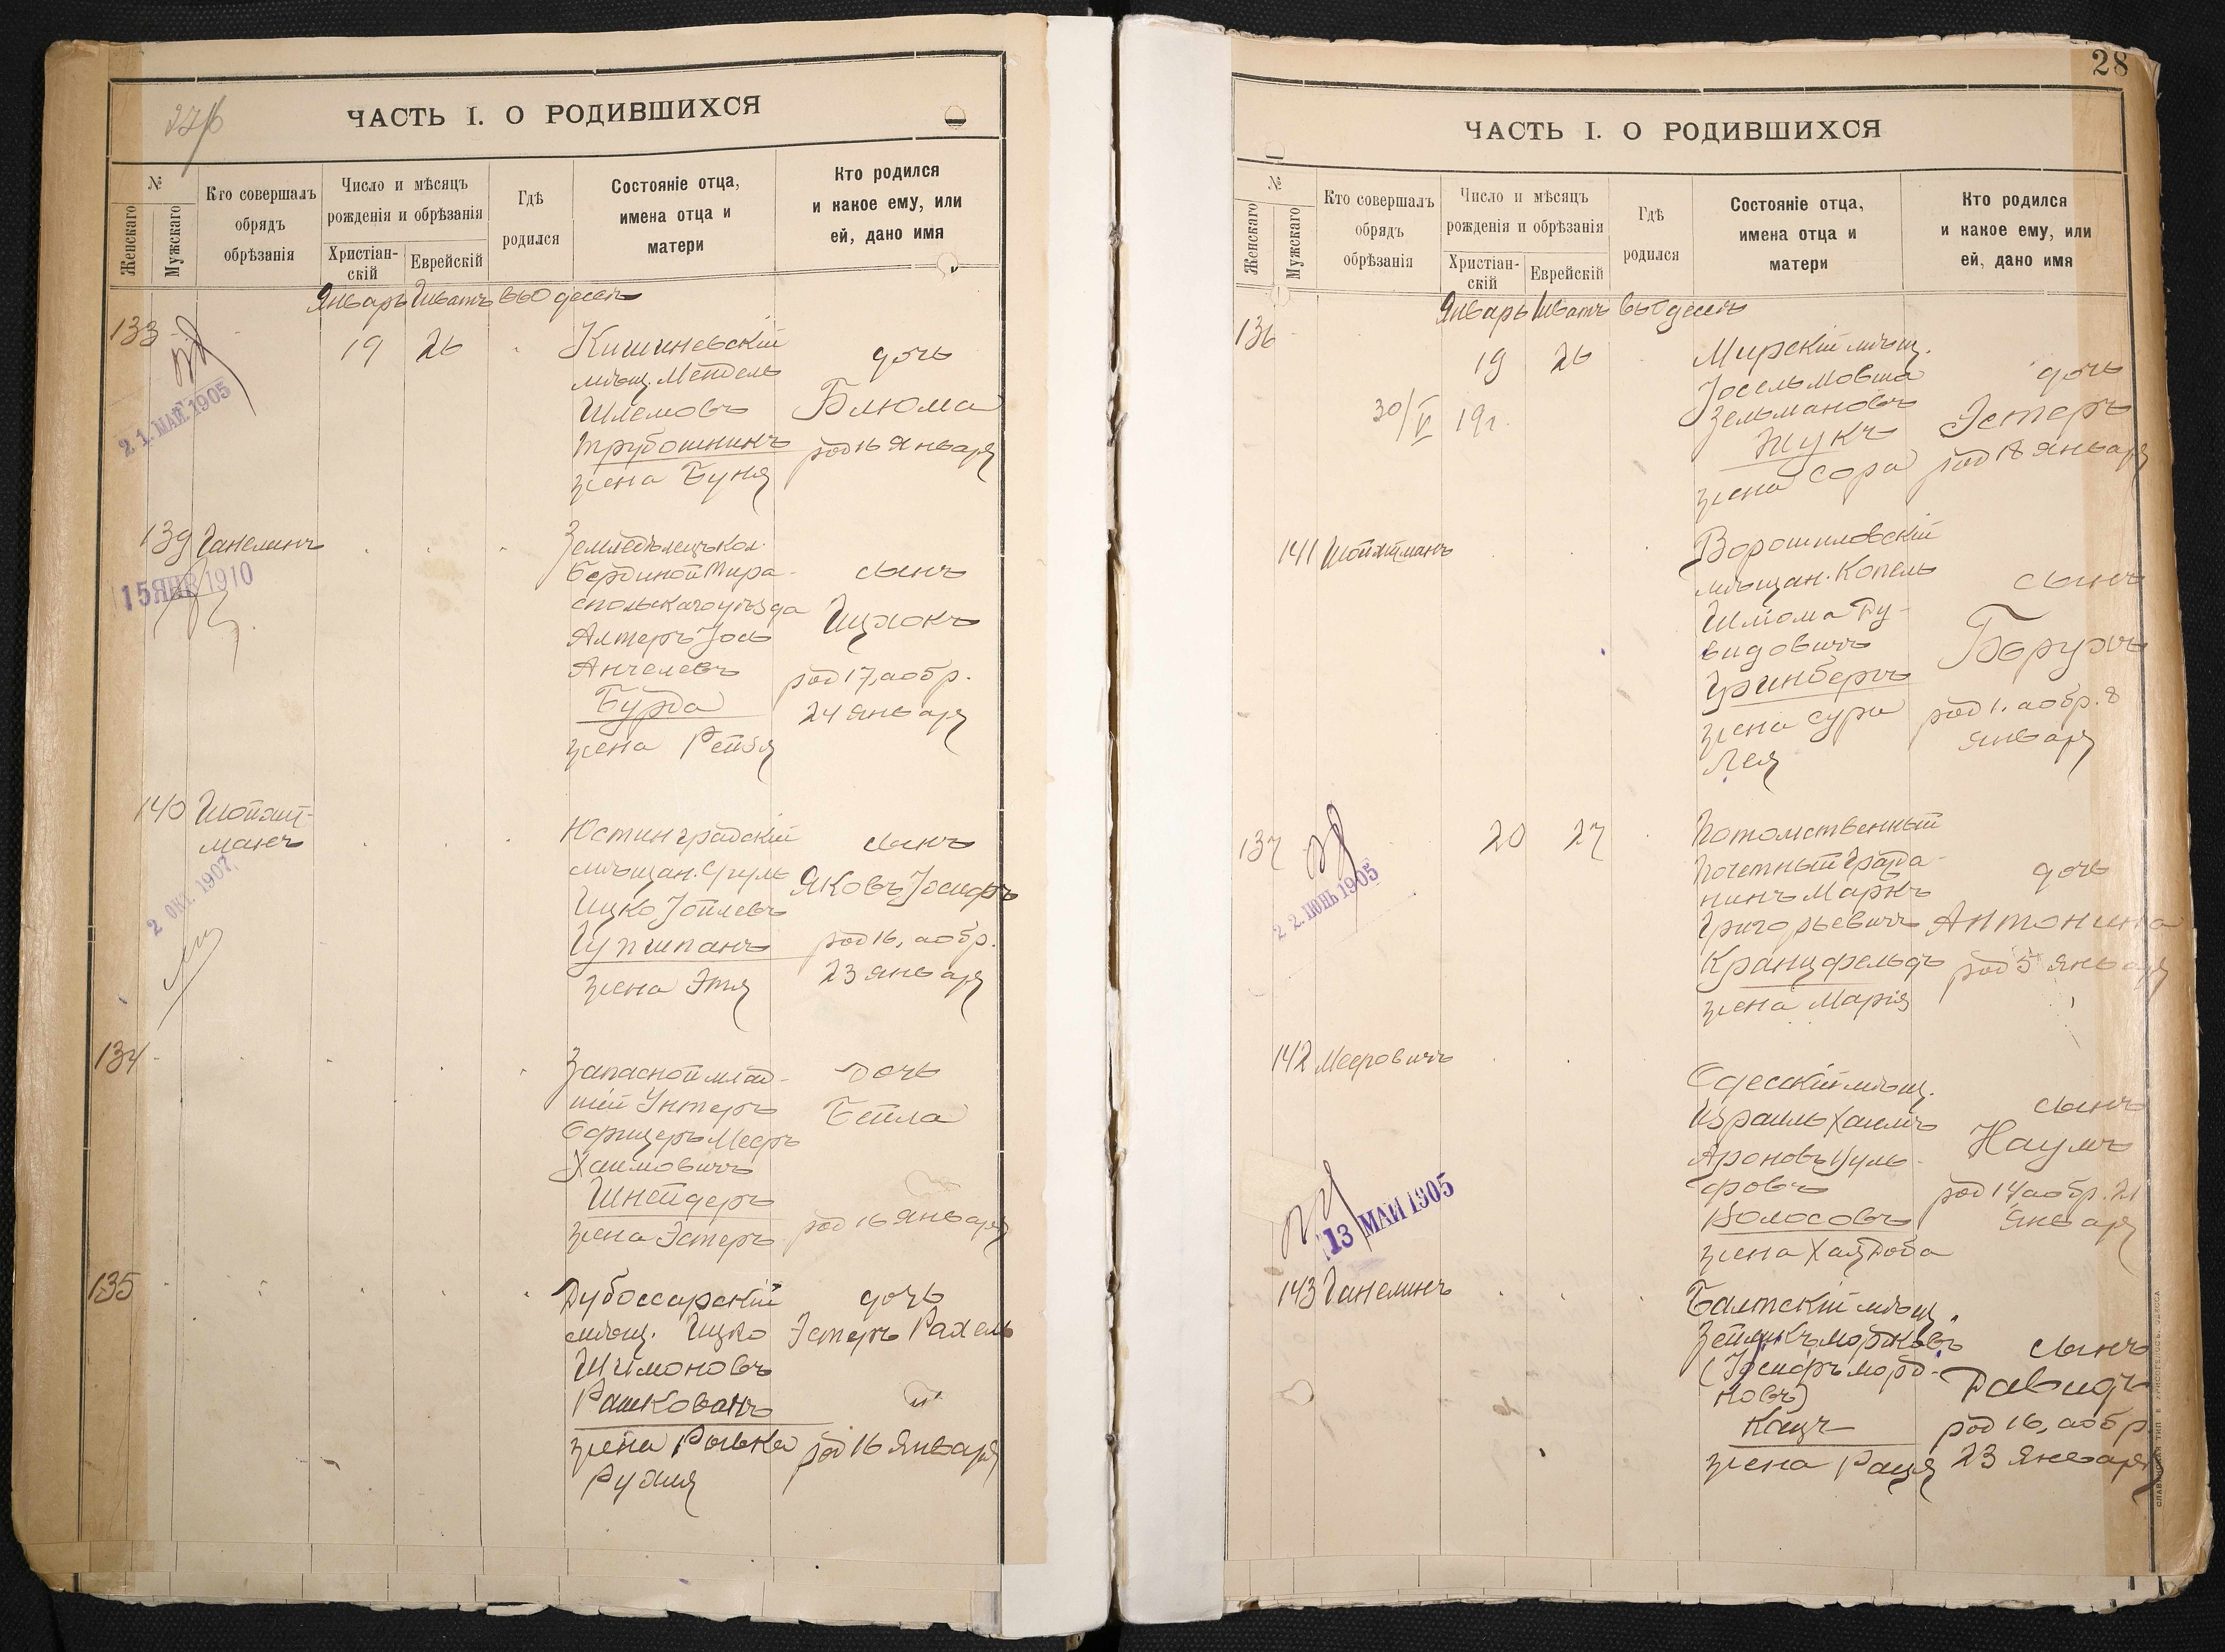 ЧАСТЬ I. О РОДИВШИХСЯ
№
Женскаго
Мужскаго
Кто совершалъ
обрядъ
обрѣзанія
Число и мѣсяцъ
рожденія и обрѣзанія
Христіан-
скій
Еврейскій
Гдѣ
родился
Состояніе отца,
имена отца и
матери
Кто родился
и какое ему, или
ей, дано имя
Январь Шватъ въ Одессѣ
133
19
26
Кишиневскій
мѣщ. Мендель
Шлемовъ
Трубошникъ
жена Буня
дочь
Блюма
род 16 Января
2 1. МАЙ. 1905
139
Ганелинъ
Земледѣлецъ кол.
Тира-
спольскаго уѣзда
Алтеръ Іось
Анчелевъ
Бурда
жена Рейзя
сынъ
Ицхокъ
род 17, а обр.
24 Января
15 ЯНВ 1910
140
Шойхит-
манъ
Юстинградскій
мѣщан. Сруль
Ицко Іойлевъ
Цупшпанъ
жена Этя
сынъ
Яковъ Іосифъ
род 16, а обр.
23 Января
2 ОКТ. 1907
134
Запасной млад-
шій Унтеръ
Офицеръ Мееръ
Хаимовичъ
Шнейдеръ
жена Эстеръ
дочь
Бейла
род 16 Января
135
Дубоссарскій
мѣщ. Ицко
Шимоновъ
Рашкованъ
жена Рывка
Рухля
дочь
Эстеръ Рахель
род 16 Января
28
ЧАСТЬ I. О РОДИВШИХСЯ
№
Женскаго
Мужскаго
Кто совершалъ
обрядъ
обрѣзанія
Число и мѣсяцъ
рожденія и обрѣзанія
Христіан-
скій
Еврейскій
Гдѣ
родился
Состояніе отца,
имена отца и
матери
Кто родился
и какое ему, или
ей, дано имя
Январь Шватъ въ Одессѣ
136
19
26
30/V 19г.
Мирскій мѣщ.
Іосель Мовша
Зельмановъ
Жукъ
жена Сора
дочь
Эстеръ
род 18 Января
141
Шойхтманъ
Ворошиловскій
мѣщан. Копель
Шлёма Ду-
видовичъ
Гринбергъ
жена Сура
Лея
сынъ
Борухъ
род 1. а обр. 8
Января
137
20
27
Потомственный
Почетный Гражда-
нинъ Маркъ
Григорьевичъ
Кранцфельдъ
жена Марія
дочь
Антонина
род 5 Января
2 2. ІЮНЬ 1905
142
Мееровичъ
Одесскій мѣщ.
Израиль Хаимъ
Ароновъ Вуль-
фовъ
Волосовъ
жена Хая Доба
сынъ
Наумъ
род 14 а обр. 21
Января
13 МАЙ 1905
143
Ганелинъ
Балтскій мѣщ.
Зейликъ Моржковъ
(Іосифъ Морд-
ковъ)
Кацъ
жена Рася
сынъ
Давидъ
род 16, а обр.
23 Января